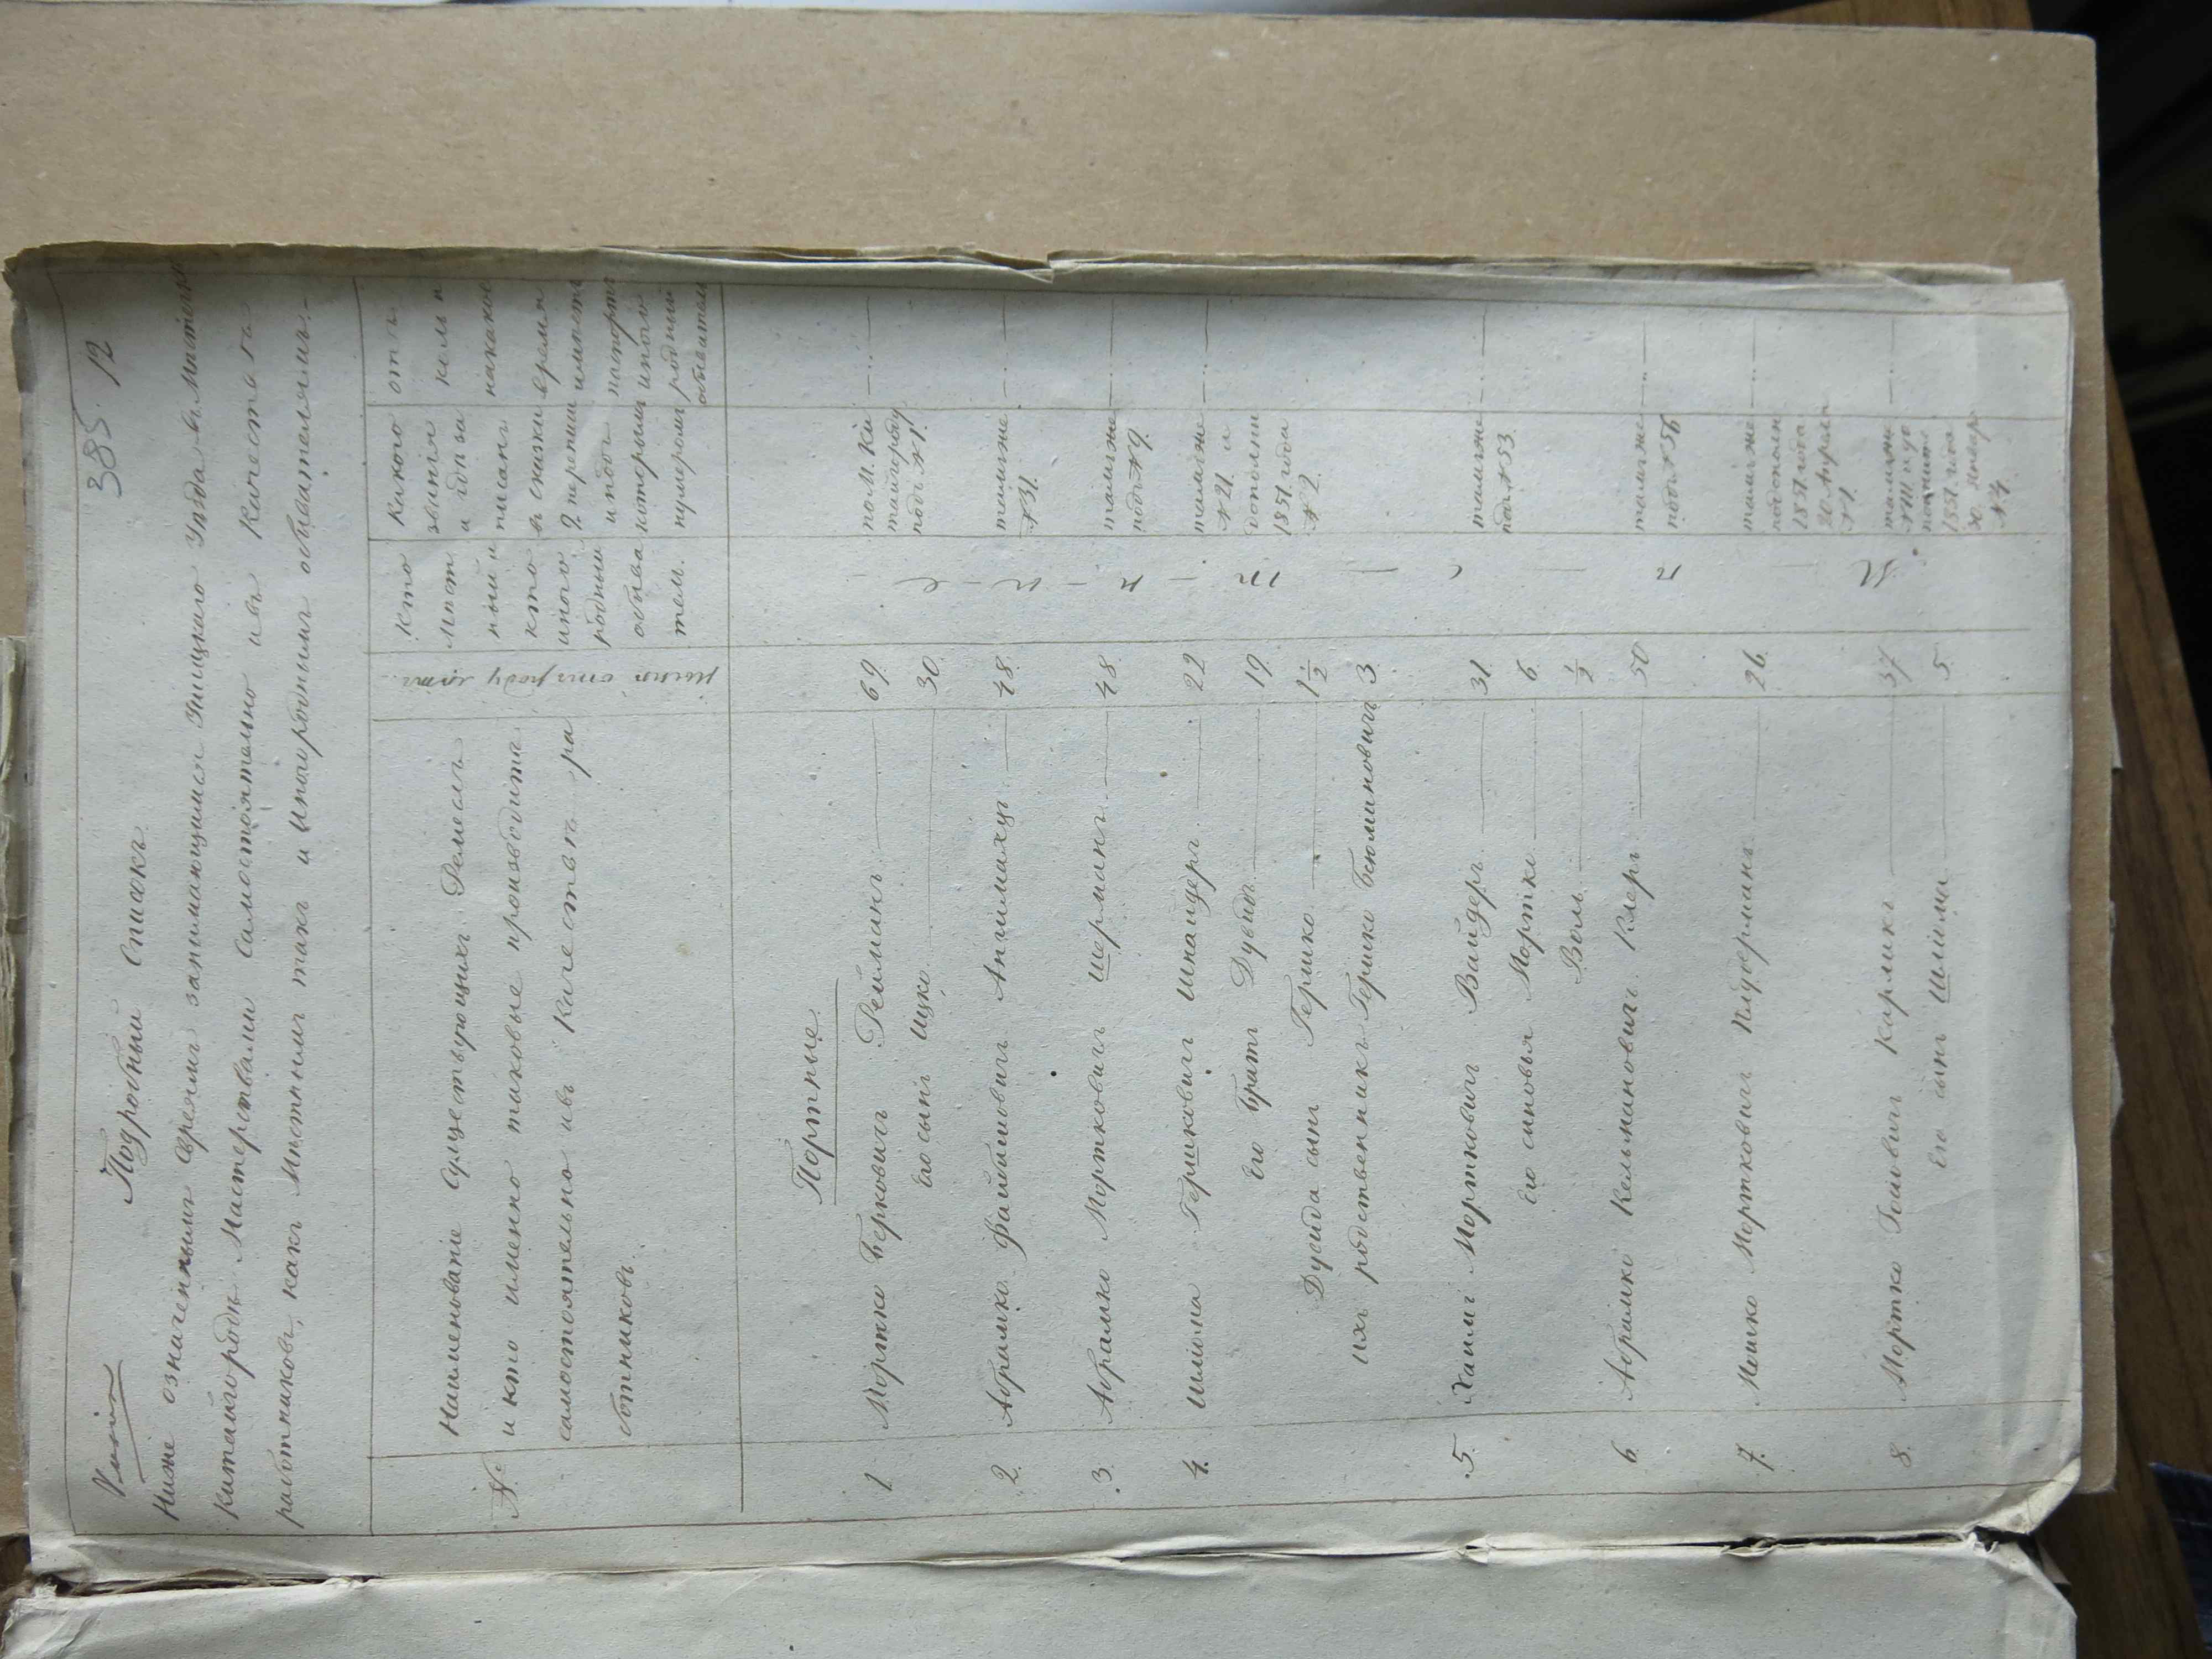 385. 12
Подробный Списокъ
Ниже означеннымъ время занимающимся Ушицкаго Уѣзда въ Мѣстечкѣ
Китайгородѣ Мастерствами самостоятельно и въ Качествѣ
работниковъ, какъ Мѣстнымъ такъ и иногороднымъ обывателямъ.
№
Наименованіе Существующихъ Ремеслъ
и кто именно таковые производитъ
самостоятельно и въ Качествѣ ра
ботниковъ
лѣтъ
Кто
мѣст
ный и
кто
иного
родный
обыва
тель.
Какого
званія
и гдѣ за
писанъ
въ сказки
9 переписи
и подъ
которымъ
нумеромъ
отъ
коль и
накакое
время
имѣетъ
паспортъ
иного
родный
обыватель
Портные.
1 Мортко Берковичъ Рейманъ 69 по М. Ки
тайгороду
подъ №1.
Его сынъ Ицко 30
2. Абрамко Файвишовичъ 48 тамъже
№31.
3. Абрамко Мортковичъ Шерманъ 48 тамъже
подъ №9.
4. Шлiома Гершковичъ Шнайдеръ 22 тамъже
№21 и
дополни
1851 года
№2.
Его Братъ Дувидъ 19
Дувида сынъ Гершко 1½
ихъ родственникъ Гершко Бенюминовичъ 3
5. Хаимъ Мортковичъ Вайдеръ 31 тамъже
подъ №53
Его сыновья Мортко 6
Воль ½
6 Абрамко Кельмановичъ Клеръ 50 тамъже
подъ №56
7. Мошко Мортковичъ Лидерманъ 26 тамъже
подополн
1851 года
20 Апрѣля
№1.
8. Мортко Карликъ 37 тамъже
1851 года
30. Января
№4.
Его сынъ Шлiома 5.